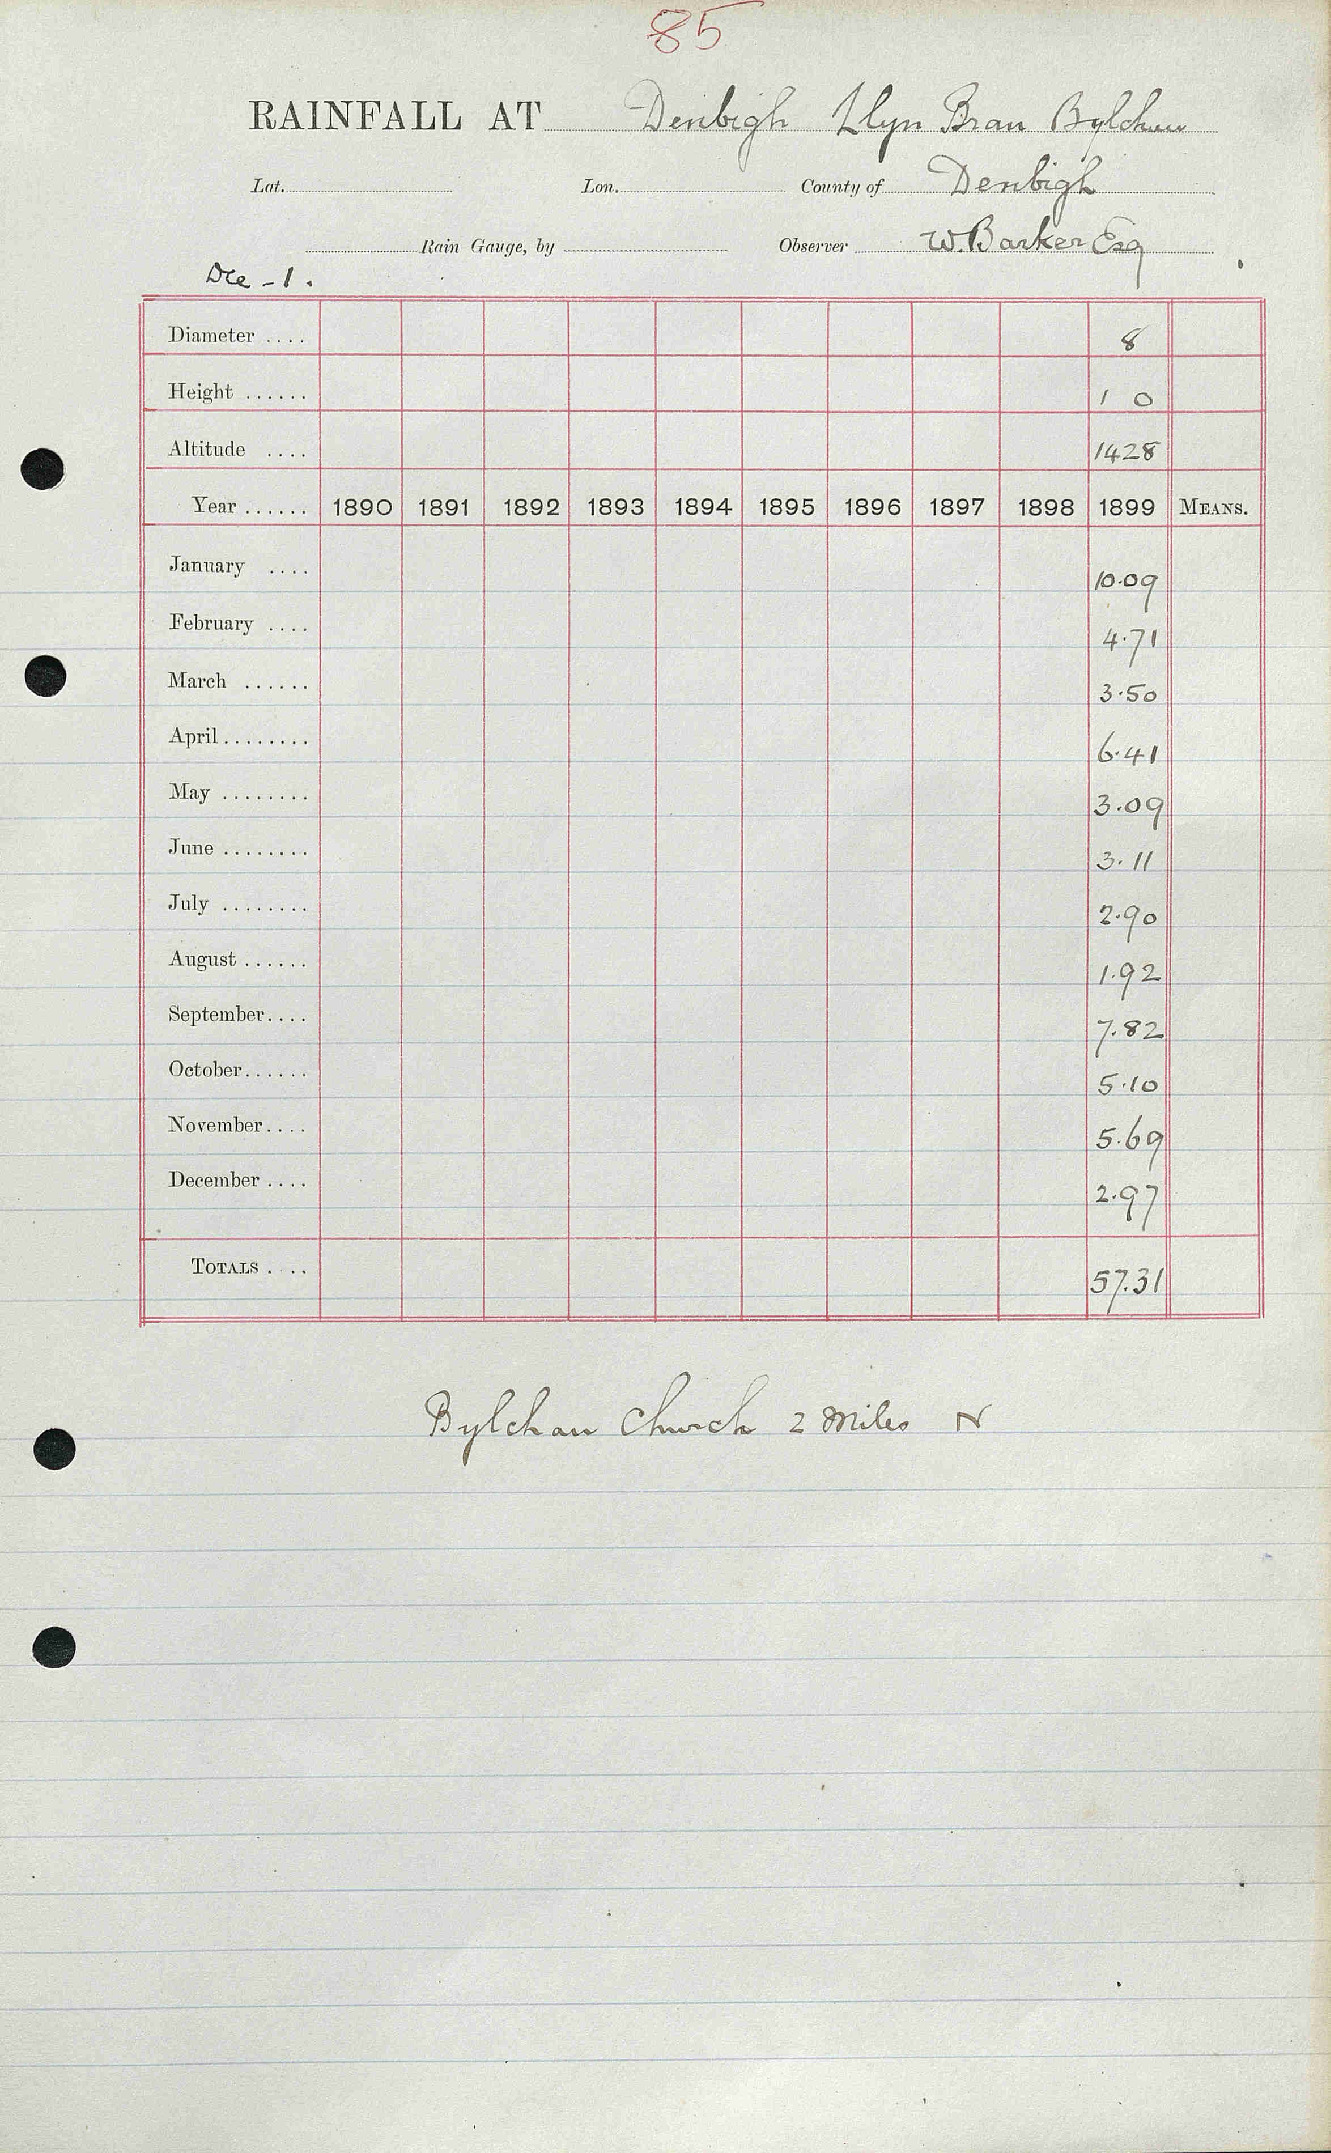 85
RAINFALL AT Denbigh Llyn Bran Bylchau
Lat. Lon. County of Denbigh
Rain Gauge, by Observer W. Barker Esq
Dec - 1.
Diameter .... 8
Height ...... 1 0
Altitude .... 1428
Year ...... 1890 1891 1892 1893 1894 1895 1896 1897 1898 1899 MEANS.
January .... 10.09
February .... 4.71
March ...... 3.50
April ........ 6.41
May ........ 3.09
June ........ 3.11
July ........ 2.90
August ...... 1.92
September .... 7.82
October ...... 5.10
November .... 5.69
December .... 2.97
TOTALS .... 57.31
Bylchau Church 2 Miles N